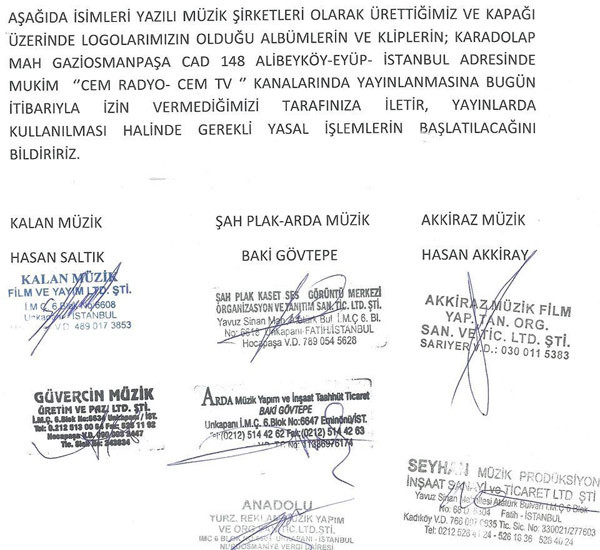 AŞAĞIDA İSİMLERİ YAZILI MÜZİK ŞİRKETLERİ OLARAK ÜRETTİĞİMİZ VE KAPAĞI
ÜZERİNDE LOGOLARIMIZIN OLDUĞU ALBÜMLERİN VE KLİPLERİN; KARADOLAP
MAH GAZİOSMANPAŞA CAD 148 ALİBEYKÖY-EYÜP- İSTANBUL ADRESİNDE
MUKİM ‘’CEM RADYO- CEM TV ‘’ KANALARINDA YAYINLANMASINA BUGÜN
İTİBARIYLA İZİN VERMEDİĞİMİZİ TARAFINIZA İLETİR, YAYINLARDA
KULLANILMASI HALİNDE GEREKLİ YASAL İŞLEMLERİN BAŞLATILACAĞINI
BİLDİRİRİZ.
KALAN MÜZİK
HASAN SALTIK
KALAN MÜZİK
FİLM VE YAYIM LTD. ŞTİ.
İ.M.Ç 6.Blok No:6608
Unkapanı - İSTANBUL
V.D. 489 017 3853
ŞAH PLAK-ARDA MÜZİK
BAKİ GÖVTEPE
ŞAH PLAK KASET SES GÖRÜNTÜ MERKEZİ
ORGANİZASYON VE TANITIM SAN. TİC. LTD. ŞTİ.
Yavuz Sinan Mah. Atatürk Bul. İ.M.Ç 6. Bl.
No: 6618 Unkapanı-FATİH/İSTANBUL
Hocapaşa V.D. 789 054 5628
AKKİRAZ MÜZİK
HASAN AKKİRAY
AKKİRAZ MÜZİK FİLM
YAP. TAN. ORG.
SAN. VE TİC. LTD. ŞTİ.
SARIYER V.D.: 030 011 5383
GÜVERCİN MÜZİK
ÜRETİM VE PAZ. LTD. ŞTİ.
İ.M.Ç. 6.Blok No:6634 Unkapanı / İST.
Tel: 0.212 513 00 84 Fax: 528 11 92
Hocapaşa V.D. 3447
Tic. Sicil No: 243634
ARDA Müzik Yapım ve İnşaat Taahhüt Ticaret
BAKİ GÖVTEPE
Unkapanı İ.M.Ç. 6.Blok No:6647 Eminönü/İST.
Tel:(0212) 514 42 62 Fax:(0212) 514 42 63
11386976174
ANADOLU
TURZ. REKLAM MÜZİK YAPIM
VE ORG. LTD.ŞTİ.
IMC 6 BLOK UNKAPANI İSTANBUL
NURUOSMANİYE VERGİ DAİRESİ
SEYHAN MÜZİK PRODÜKSİYON
İNŞAAT SANAYİ ve TİCARET LTD ŞTİ
Yavuz Sinan Mahallesi Atatürk Bulvarı İ.M.Ç 6 Blok
Fatih - İSTANBUL
Kadıköy V.D. Tic. Sic. No: 330021/277603
Tel: 0212 528 - 526 18 36 528 40 24